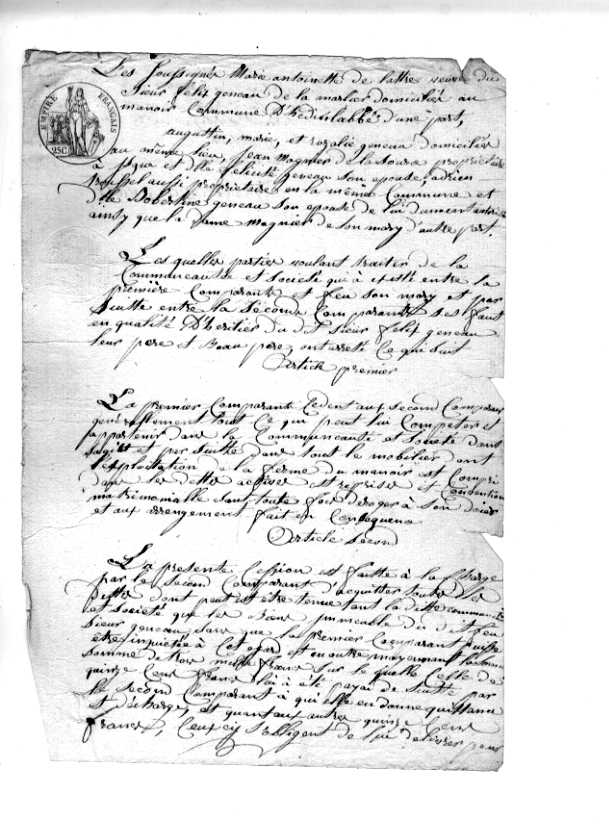 EMPIRE FRANÇAIS
25C
Les Soussignés Marie antoinette de lattre veuve du
Sieur felix geneau de la marlier domiciliée au
manoir Commune D'hedinlabbé d'une part,
augustin, marie, et rozalie geneau domiciliés
au même lieu, Jean Magnier de la propriétaire
à et dlle felicité geneau son epouse, adrien
roussel aussi propriétaire en la même Commune et
dlle geneau son epouse de lui dument
ainsy que la Dame magnier de son mary d'autre part.
Les quelles parties voulant traiter de la
Communauté et Societé qui à existé entre la
première Comparante et feu son mary et par
Suitte entre la Second Comparants
en qualité D'heritier du dit Sieur felix geneau
leur pere et Beau pere, ont arreté Ce qui Suit
Article premier
La premier Comparante Cedent aux Second Comparant
generallement tout Ce qui peut lui Competer et
appartenir dans la Communauté et Societé dont
Sagit et par Suitte dans tout le mobilier dont
l'Exploitation de la ferme du manoir est Compri
dans les dettes active et reprises et Convention
matrimonialle Sans toute fois deroger à Son
et aux arrengement fait en Consequence
Article Second
La presente Cession est faitte à la Charge
par le Second Comparant d'acquitter toutes les
dettes dont peut être tenue tant la ditte communauté
et Société que les Biens immeuble du dit feu
Sieur geneau Sans que la premier Comparant puisse
être inquietée à Cet egard et en outre moyennant la Somme
Somme de trois mille francs Sur la quelle Celle de
quinze Cent francs lui à été payai de Suitte par
le Second Comparant à qui elle en donne quittance
et décharge, et quant aux autre quinze Cent
francs, Ceux cy S'obligent de lui delivrer pour